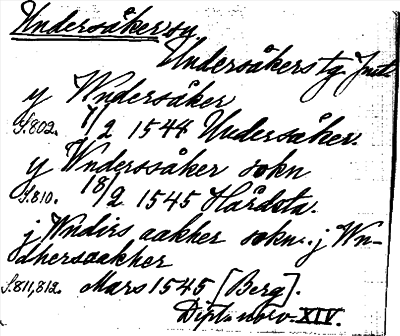 Undersåkers sn
Undersåkers tg. Jmtl.
y Wndersåker
S.802. 7/2 1544 Undersåker.
y Wnderssåker sokn
S.810. 18/2 1545 Hårdsta.
j Wndirs aakker sokn.. j Wn-
dhersaakker
S.811,812. Mars 1545 [Berg].
Dipl. norv. XIV.